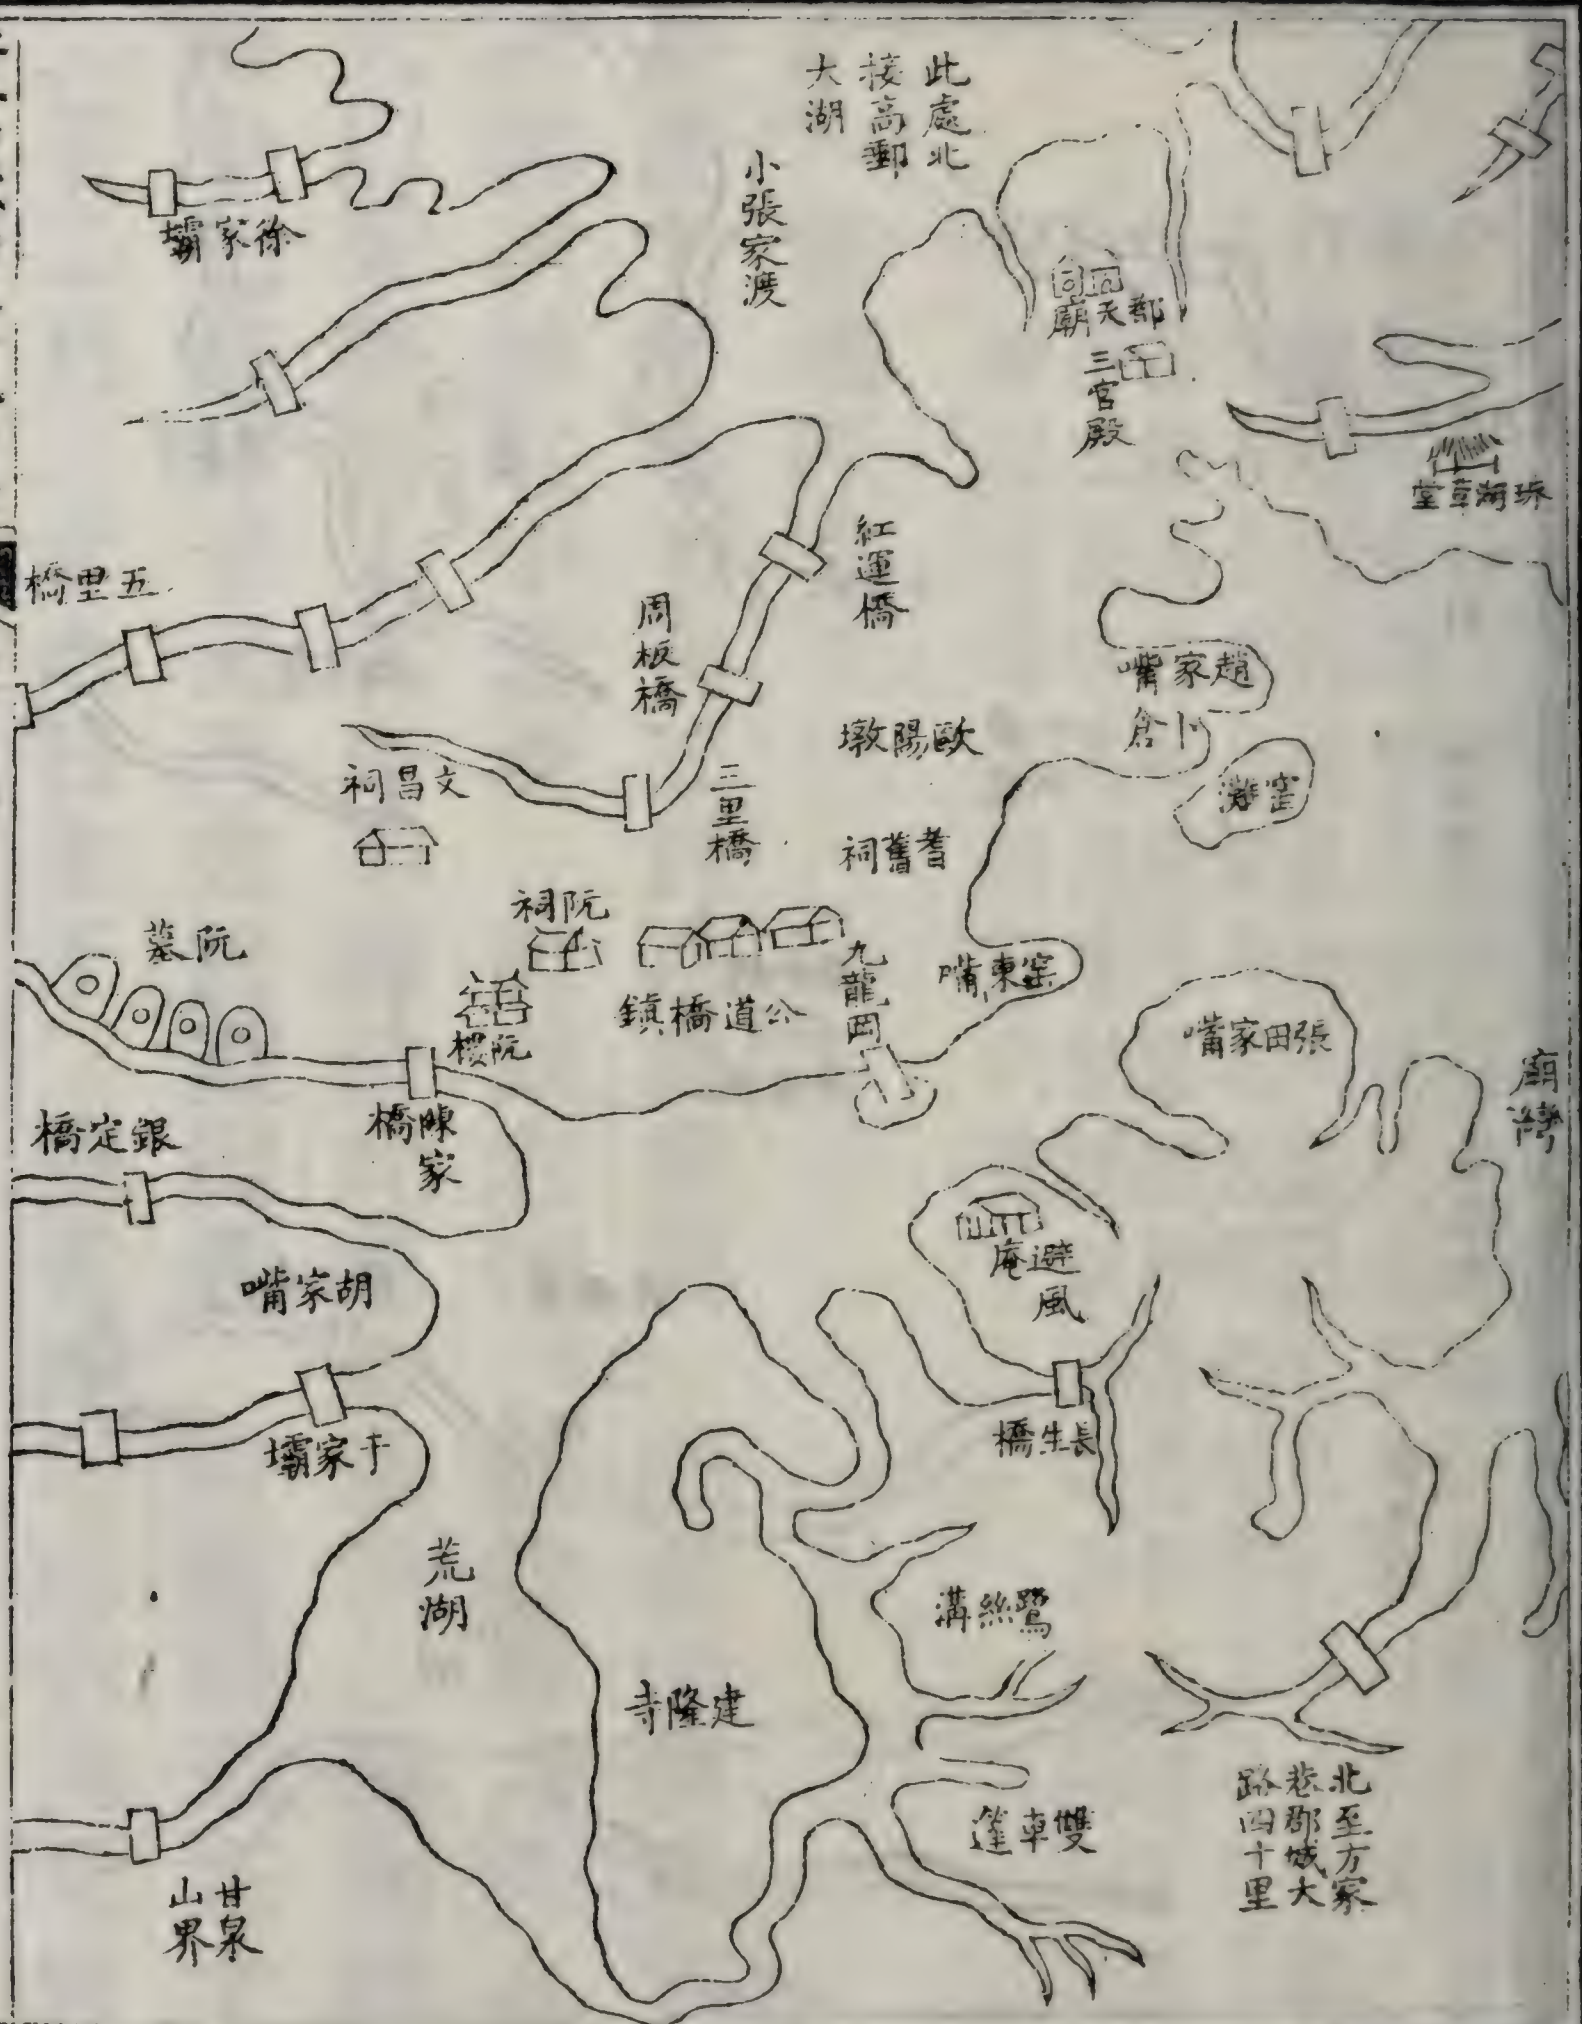 此處北
接高郵
大湖
小張家渡
徐家壩
都天廟
三官殿
珠湖草堂
紅運橋
周板橋
五里橋
趙家嘴
卜倉
窑灘
歐陽墩
三里橋
文昌祠
耆舊祠
阮祠
阮墓
阮樓
公道橋鎮
九龍岡
窑東嘴
張田家嘴
廟灣
陳家橋
銀定橋
避風庵
胡家嘴
長生橋
干家壩
荒湖
鷺絲溝
建隆寺
雙車篷
北至方家
巷郡城大
路四十里
甘泉
山界